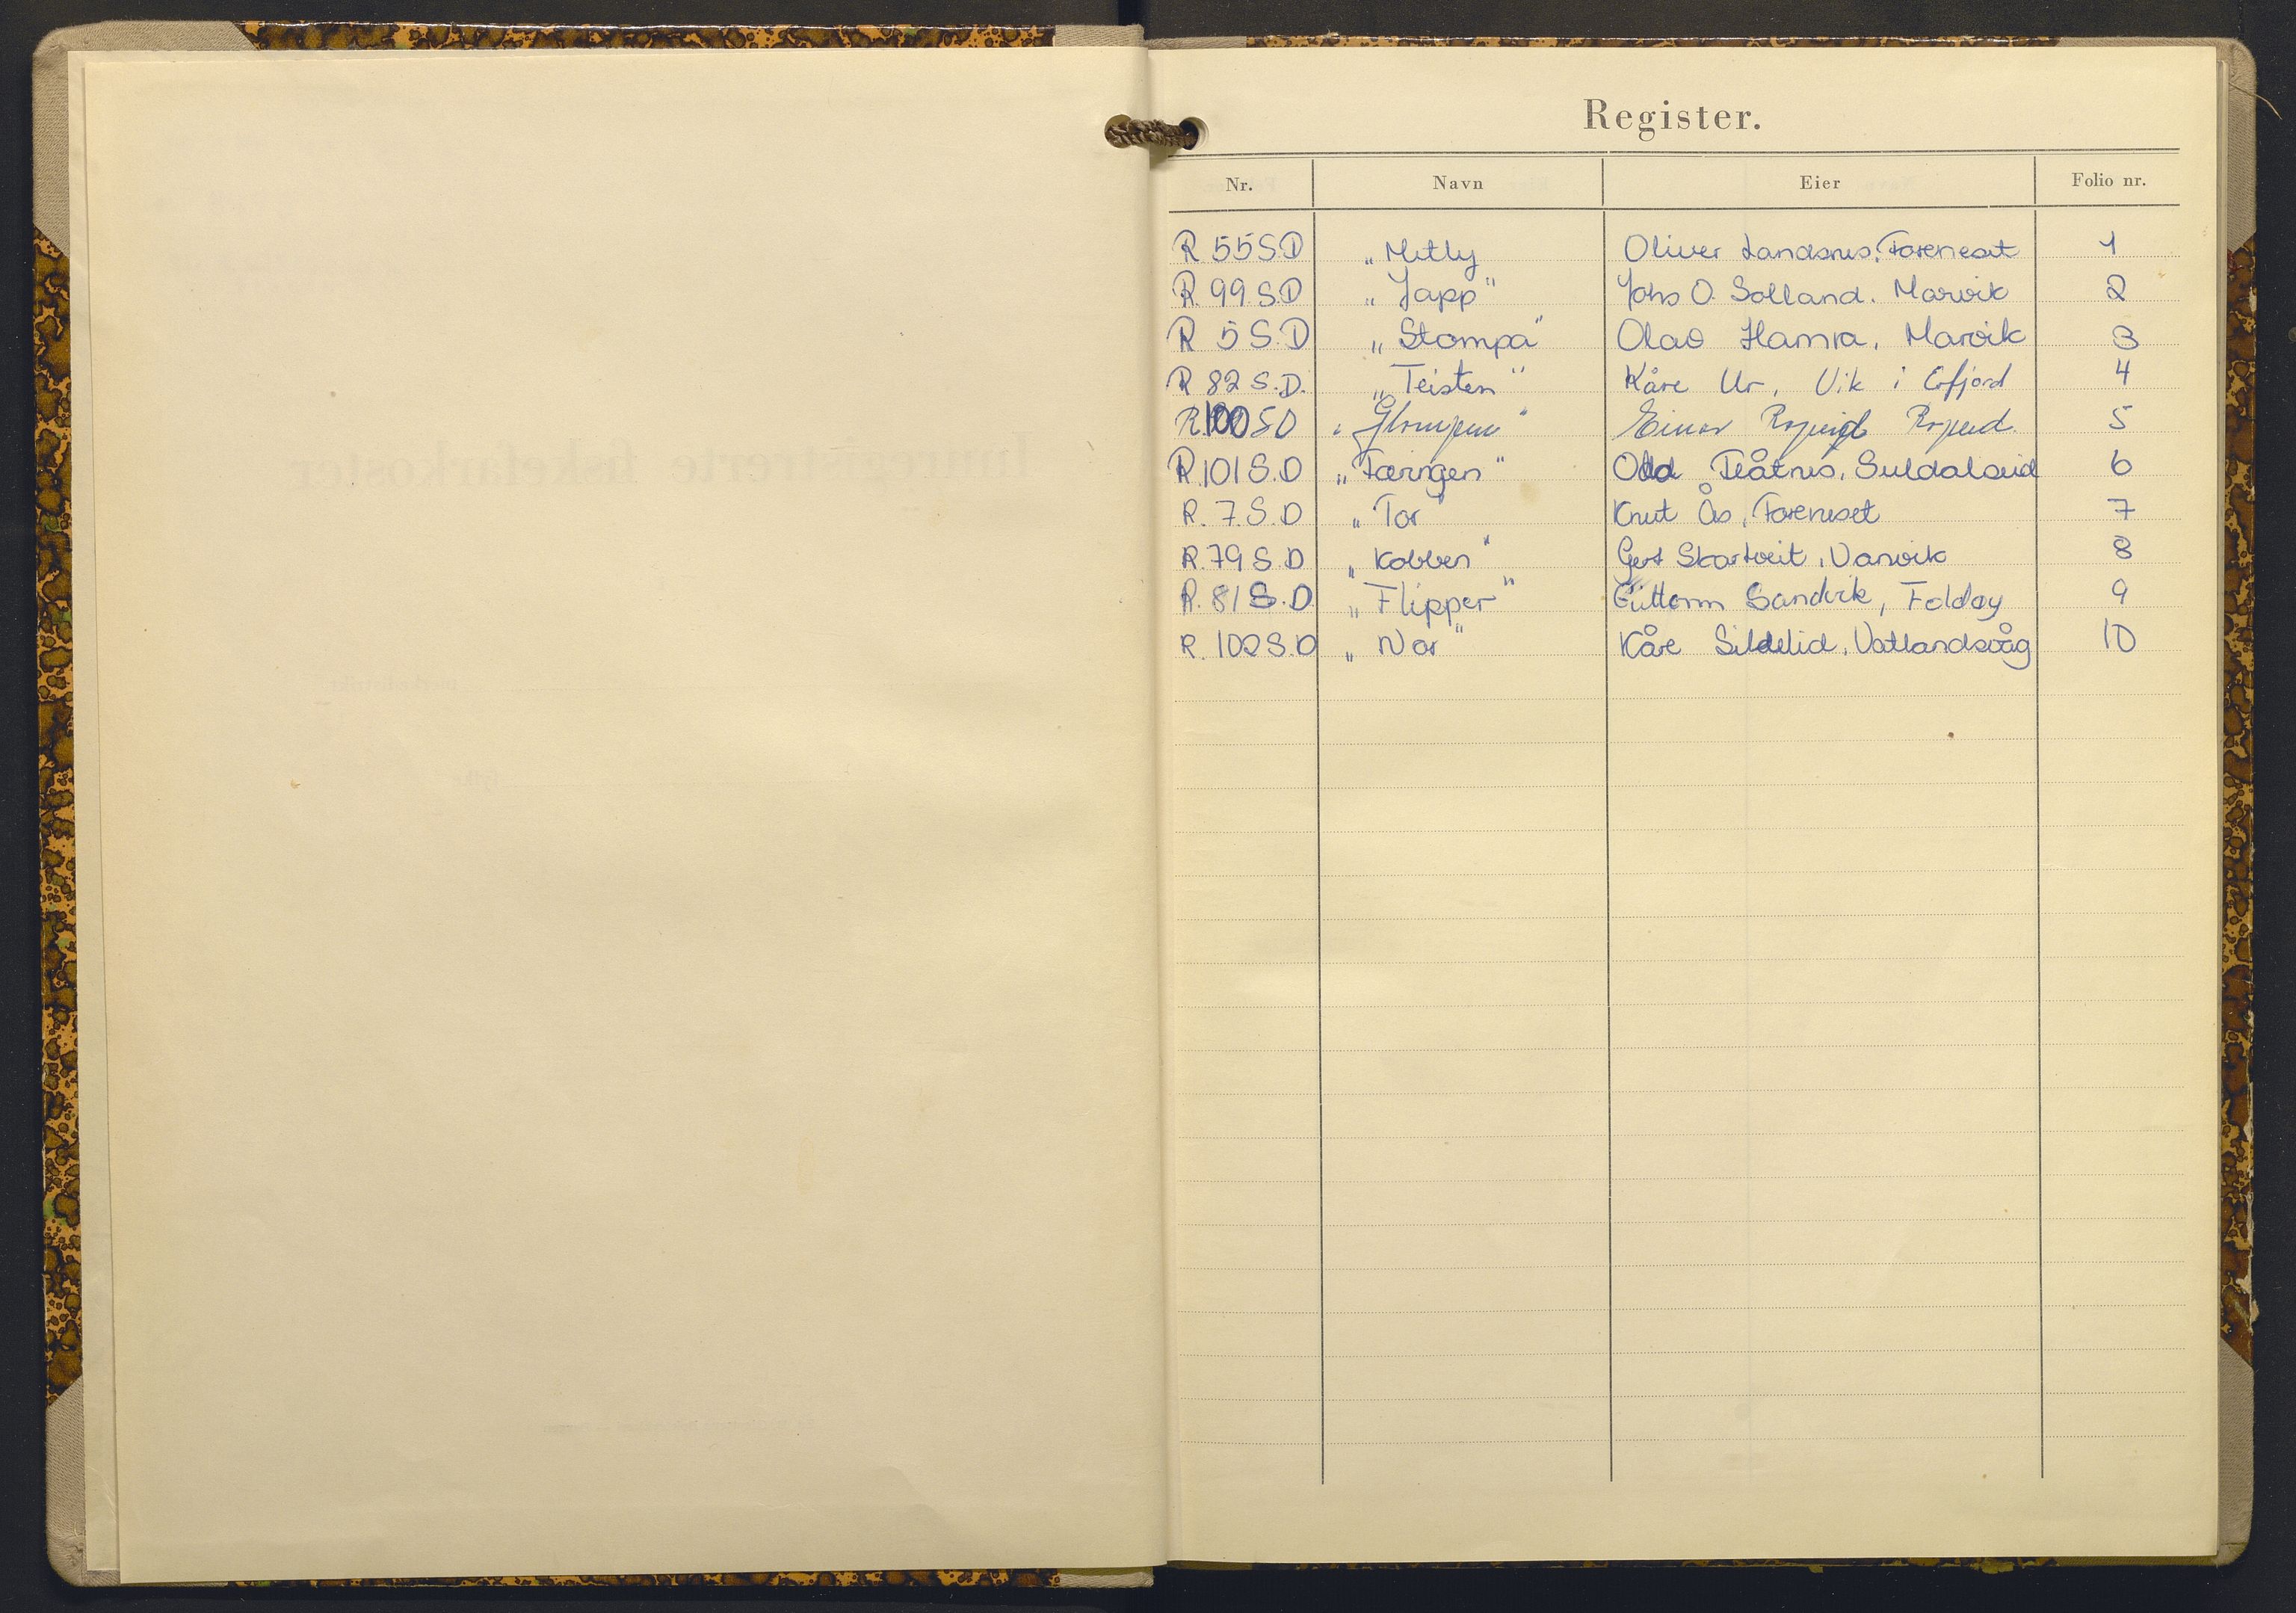 Register.
Nr. Navn Eier Folio nr.
R 55 S D „Metly Oliver Landsnes. Foreneset 1
R. 99. S.D „Japp" Johs O. Solland. Marvik 2
R 5 S.D „Stompa" Olav Hamra, Marvik 3
R 82 S.D. „Teisten" Kåre Ur, Vik i Erfjord 4
R. 100 S D Einar 5
R. 101 S.D „Færingen" Odd Flåtnes, Suldalseid 6
R. 7. S.D „Tor" Knut Ås, Foreneset 7
R. 79 S.D „Kobben" Gert Skartveit, Vanvik 8
R. 81 S.D. „Flipper" Guttorm Sandvik, Foldøy 9
R. 102 S.D „Nor" Kåre Sildelid, Vatlandsvåg 10